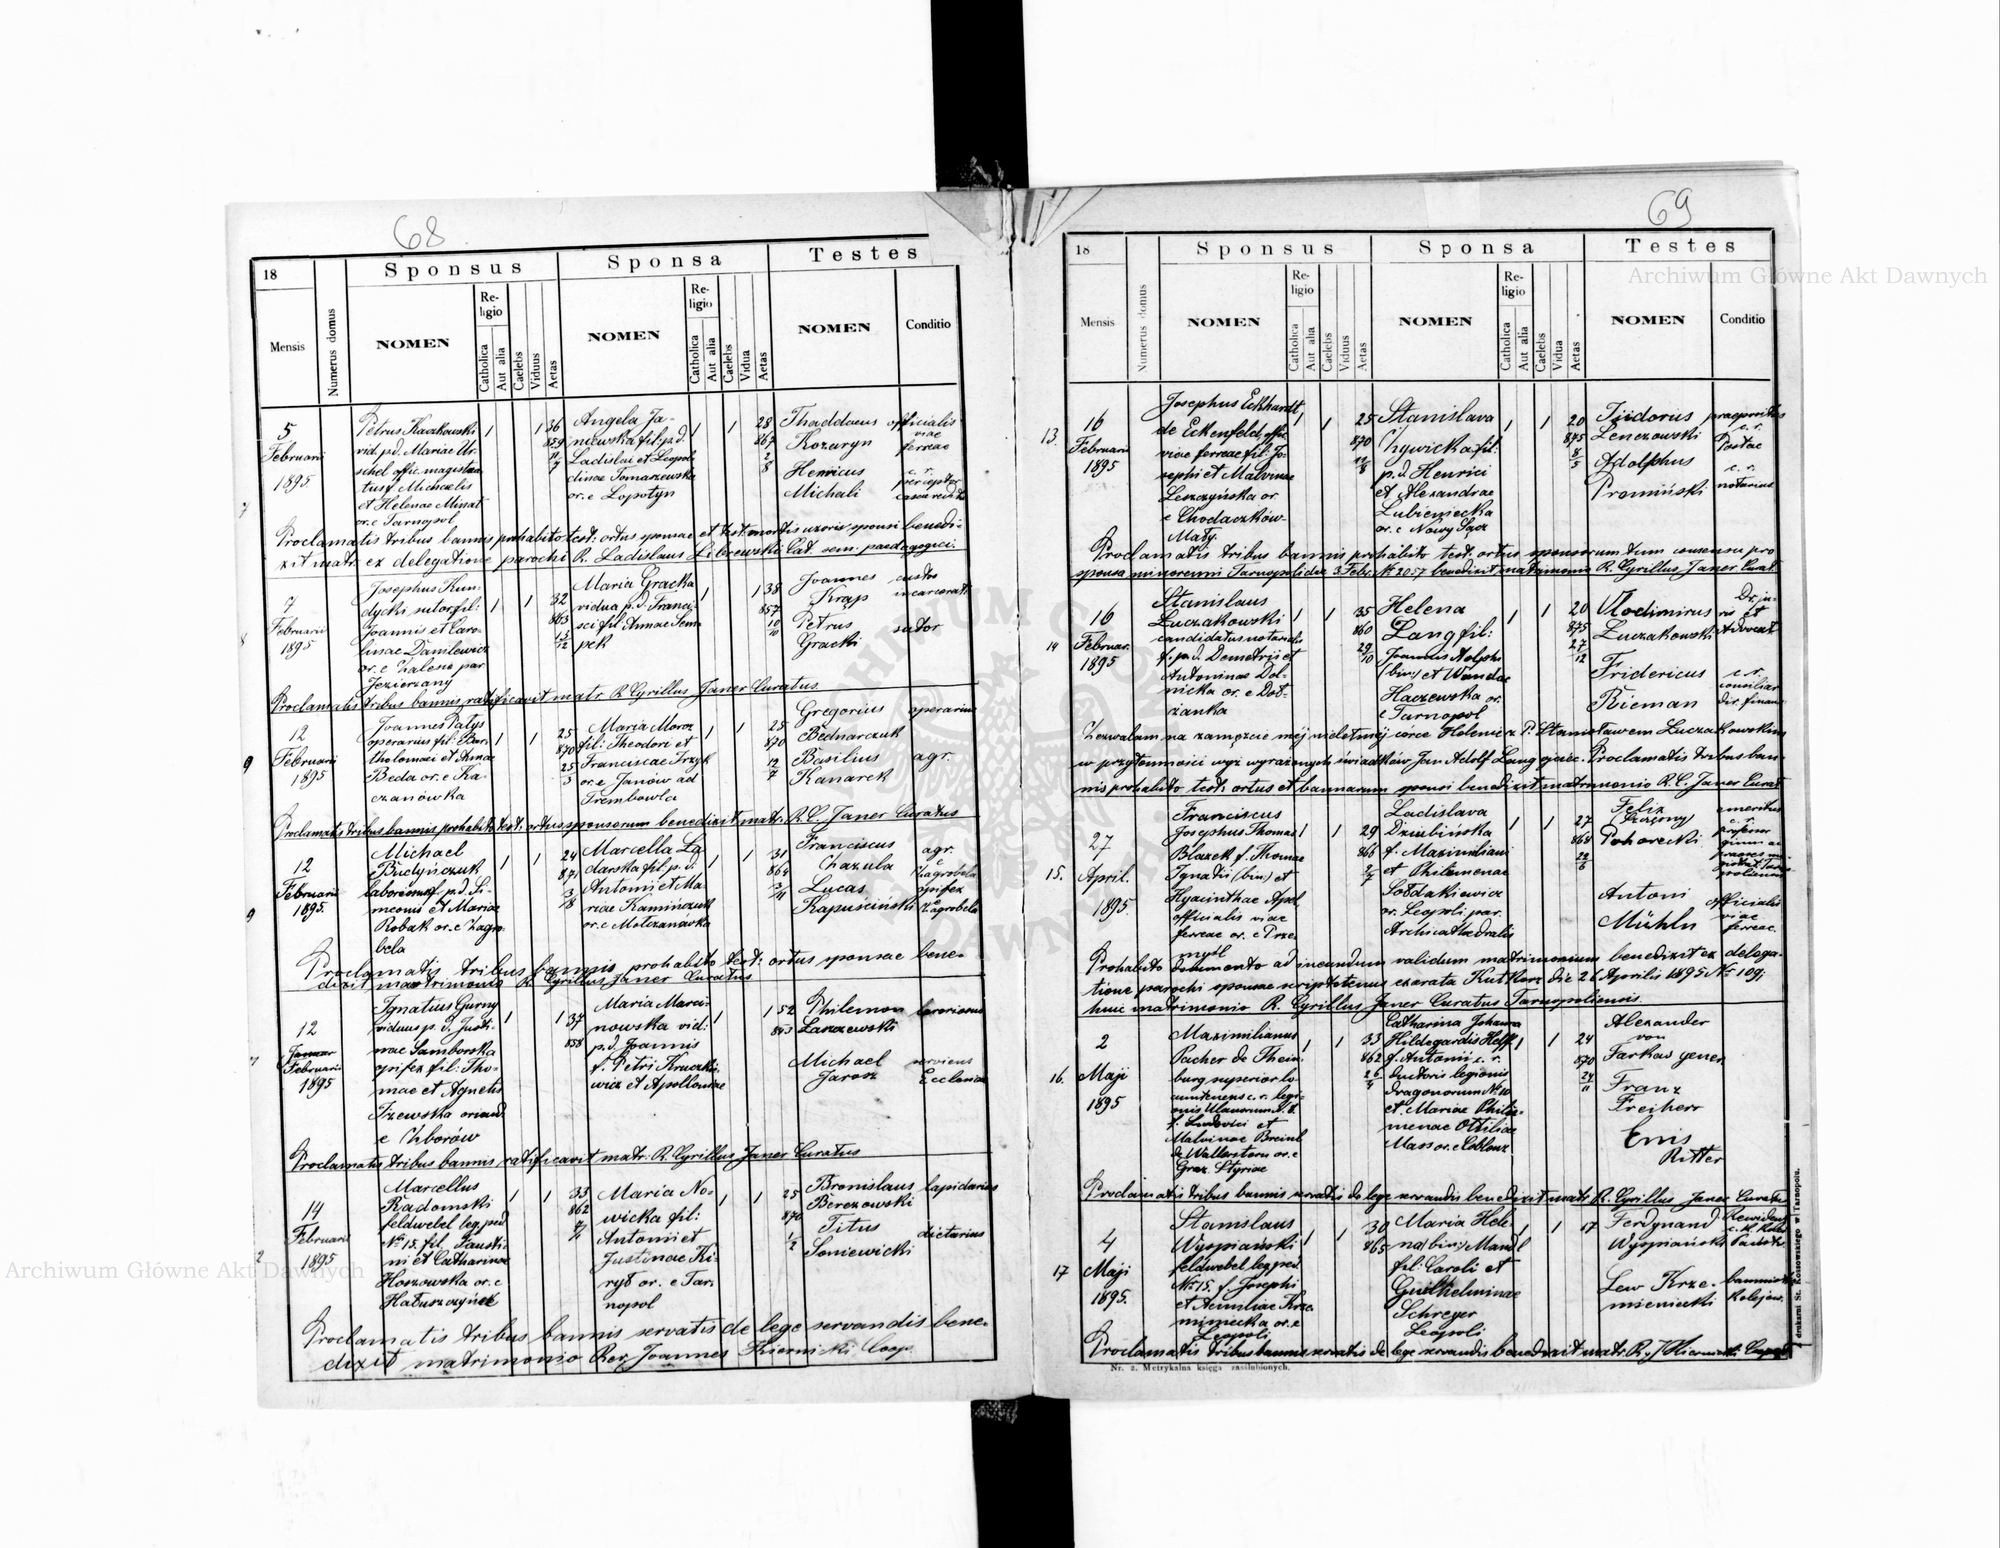 68
18
Sponsus
Sponsa
Testes
Mensis
Numerus domus
NOMEN
Religio
Catholica
Aut alia
Caelebs
Viduus
Aetas
NOMEN
Religio
Catholica
Aut alia
Caelebs
Vidua
Aetas
NOMEN
Conditio
5
Februarii
1895
Petrus Kaczkowski
vid. p.d. Mariae Ur-
schel offic. magistra
tus f. Michaelis
et Helenae Minat
or. e Tarnopol
36
859
Angela Ja-
niewska fil: p.d.
Ladislai et Leopol
dinae Tomaszewska
or. e Lopotyn
28
867
2
8
Thaddaeus
Kozaryn
Henricus
Michali
officialis
viae
ferreae
c. r.
Proclamatis tribus bannis prohabito test: ortus sponsae et test: mortis uxoris sponsi benedi-
xit matr. ex delegatione parochi R. Ladislaus Librewski Cat. sem. paedagogici.
7
Februarii
1895
Josephus Kun-
dycki sutor fil:
Joannis et Caro-
linae Danilewicz
or. e Zalesie par
Jezierzany
32
863
Maria Gracka
vidua p.d. Franci-
sci fil Annae Sem-
pek
38
857
10
10
Joannes
Krąp
Petrus
Gracki
custos
incarcerati
sutor
Proclamatis tribus bannis ratificavit matr R. Cyrillus Janer Curatus
12
Februarii
1895
Joannes Patys
operarius fil: Bar-
tholomaei et Annae
Beda or. e Ka-
czanówka
25
870
25
3
Maria Moroz
fil: Theodori et
Franciscae Trzyk
or. e Janów ad
Trembowla
25
870
12
7
Gregorius
Bednarczuk
Basilius
Kanarek
operarius
agr.
Proclamatis tribus bannis prohabito test: ortus sponsorum benedixit matr. R.C. Janer Curatus
12
Februarii
1895.
Michael
Budynczuk
laboriosus f. p.d. Si-
meonis et Mariae
Robak or. e Zagro-
bela
24
871
3
8
Marcella La-
darska fil p.d.
Antonii et Ma-
riae Kaminczuk
or. e Mołczanówka
31
864
3
11
Franciscus
Chazula
Lucas
Kapuściński
agr.
e
Zagrobela
opifex
e
Zagrobela
Proclamatis tribus bannis prohabito test: ortus sponsae bene-
dixit matrimonio R. Cyrillus Janer Curatus
12
Januar
Februarii
1895
Ignatius Gurny
viduus p.d. Justi-
nae Samborska
opifex fil: Tho-
mae et Agnetis
Tzewska oriund
e Zborów
37
858
Maria Marci-
nowska vid:
p.d. Joannis
f. Petri Kruczki-
wicz et Apolloniae
52
843
Philemon
Laszzewski
Michael
Jarosz
laboriosus
serviens
Ecclesiae
Proclamatis tribus bannis ratificavit matr: R. Cyrillus Janer Curatus
14
Februarii
1895
Marcellus
Radomski
feldwebel leg. ped
No 15. fil. Fausti-
ni et Catharinae
Hoszowska or. e
Hałuszczyńce
33
862
Maria No-
wicka fil:
Antonii et
Justinae Ki-
ryż or. e Tar-
nopol
25
870
1
2
Bronislaus
Berezowski
Titus
Soniewicki
lapidarius
dietarius
Proclamatis tribus bannis servatis de lege servandis bene-
dixit matrimonio Rev. Joannes Kiernicki Coop.
69
18
Sponsus
Sponsa
Testes
Mensis
Numerus domus
NOMEN
Religio
Catholica
Aut alia
Caelebs
Viduus
Aetas
NOMEN
Religio
Catholica
Aut alia
Caelebs
Vidua
Aetas
NOMEN
Conditio
13.
16
Februarii
1895
Josephus Eckhardt
de Eckenfeld offic.
viae ferreae fil: Jo-
sephi et Malvinae
Leszczyńska or.
e Chodaczków-
Mały.
25
870
Stanislava
Chywicka fil:
p.d. Henrici
et Alexandrae
Lubieniecka
or. e Nowy Sącz
20
875
8
5
Isidorus
Lenczowski
Adolphus
Promiński
praepositus
c. r.
Postae
c. r.
notarius
Proclamatis tribus bannis prohabito test. ortus sponsorum tum consensu pro
sponsa minorenni Tarnopoli die 3. Febr. No 2057 benedixit matrimonio R. Cyrillus Janer Curat.
14
16
Februar.
1895
Stanislaus
Łuczakowski
candidatus notarialis
f. p.d. Demetrii et
Antoninae Dol-
nicka or. e Doł-
żanka
35
860
29
10
Helena
Lang fil:
Joannis Adolphi
(bin.) et Wandae
Haczewska or.
e Tarnopol
20
875
27
12
Vlodimirus
Łuczakowski
Fridericus
Rieman
Dr. ju-
ris et
Advocat
c. r.
consiliar
dir. finan
Zezwalam na zamęzcie mej nieletniej córce Helenie z P. Stanisławem Łuczakowskim
w przytomności wyż wyrażonych świadków Jan Adolf Lang ojciec. Proclamatis tribus ban-
nis prohabito test: ortus et bannorum sponsi benedixit matrimonio R.C. Janer Curat
15.
27
April.
1895
Franciscus
Josephus Thomas
Blazek f. Thomae
Ignatii (bin:) et
Hyacinthae Apol.
officialis viae
ferreae or. e Prze-
myśl
29
866
Ladislava
Dziubińska
f. Maximiliani
et Philomenae
Sołdakiewicz
or. Leopoli par.
Archicathedralis
27
868
22
6
Felix
Pohorecki
Antoni
Mühln
emeritus
c. r.
professor
officialis
viae
ferreae.
Prohabito documento ad ineundum validum matrimonium benedixit ex delega-
tione parochi sponsae scriptotenus exarata Kutkorz die 26 Aprilis 1895 No 109;
huic matrimonio R. Cyrillus Janer Curatus Tarnopoliensis.
16.
2
Maji
1895
Maximilianus
Pacher de Thein-
burg superior lo
cumtenens c. r. legi-
onis Ulanorum
f. Ludovici et
Malvinae Breinl
de Wallerstern or. e
Graz Styriae
33
862
Catharina Johanna
Hildegardis Helff
f. Antonii c. r.
ductoris legionis
dragonorum No 10
et Mariae Philo-
menae Ottiliae
Mass or. e Coblenz
24
870
24
11
Alexander
von
Farkas gener.
Franz
Freiherr
Enis
Ritter
Proclamatis tribus bannis servatis de lege servandis benedixit matr R. Cyrillus Janer Curatus
17
4
Maji
1895.
Stanislaus
Wyspiański
feldwebel leg ped
No 15. f. Josephi
et Aemiliae Krze-
mimiecka or. e
Leopoli
30
865
Maria Hele-
na (bin:) Mandl
fil: Caroli et
Guilhelminae
Schreyer
Leopoli
17
Ferdynand
Wyspiański
Lew Krze-
mieniecki
Rewident
c. k. Kolei
Państw.
Kolejow.
Proclamatis tribus bannis servatis de lege servandis benedixit matr. R. J Kiernicki Coop.
Nr. 2. Metrykalna księga zaślubionych.
Z drukarni St. Kossowskiego w Tarnopolu.
Archiwum Główne Akt Dawnych
Archiwum Główne Akt Dawnych